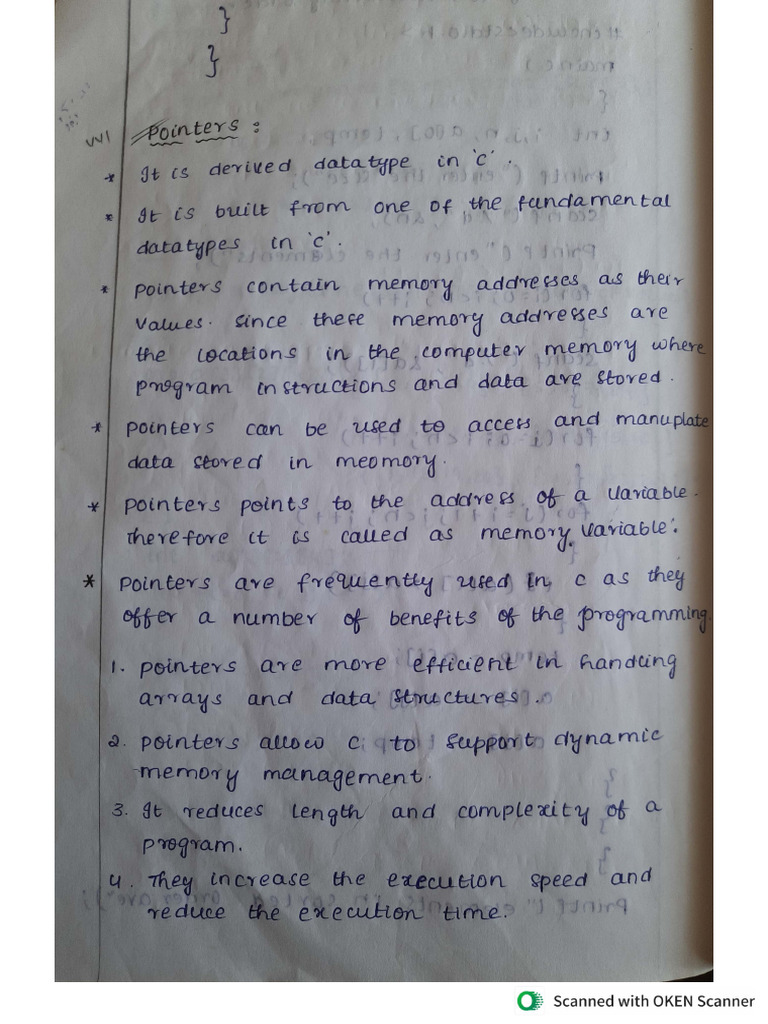 }
}
VVI Pointers :
* It is derived datatype in 'c'.
* It is built from one of the fundamental
datatypes in 'c'.
* pointers contain memory addresses as their
values. since these memory addresses are
the locations in the computer memory where
program instructions and data are stored.
* pointers can be used to access and manuplate
data stored in meomory.
* pointers points to the address of a variable.
therefore it is called as memory variable.
* pointers are frequently used in c as they
offer a number of benefits of the programming.
1. pointers are more efficient in handling
arrays and data structures.
2. pointers allow c to support dynamic
memory management.
3. It reduces length and complexity of a
program.
4. They increase the execution speed and
reduce the execution time.
Scanned with OKEN Scanner